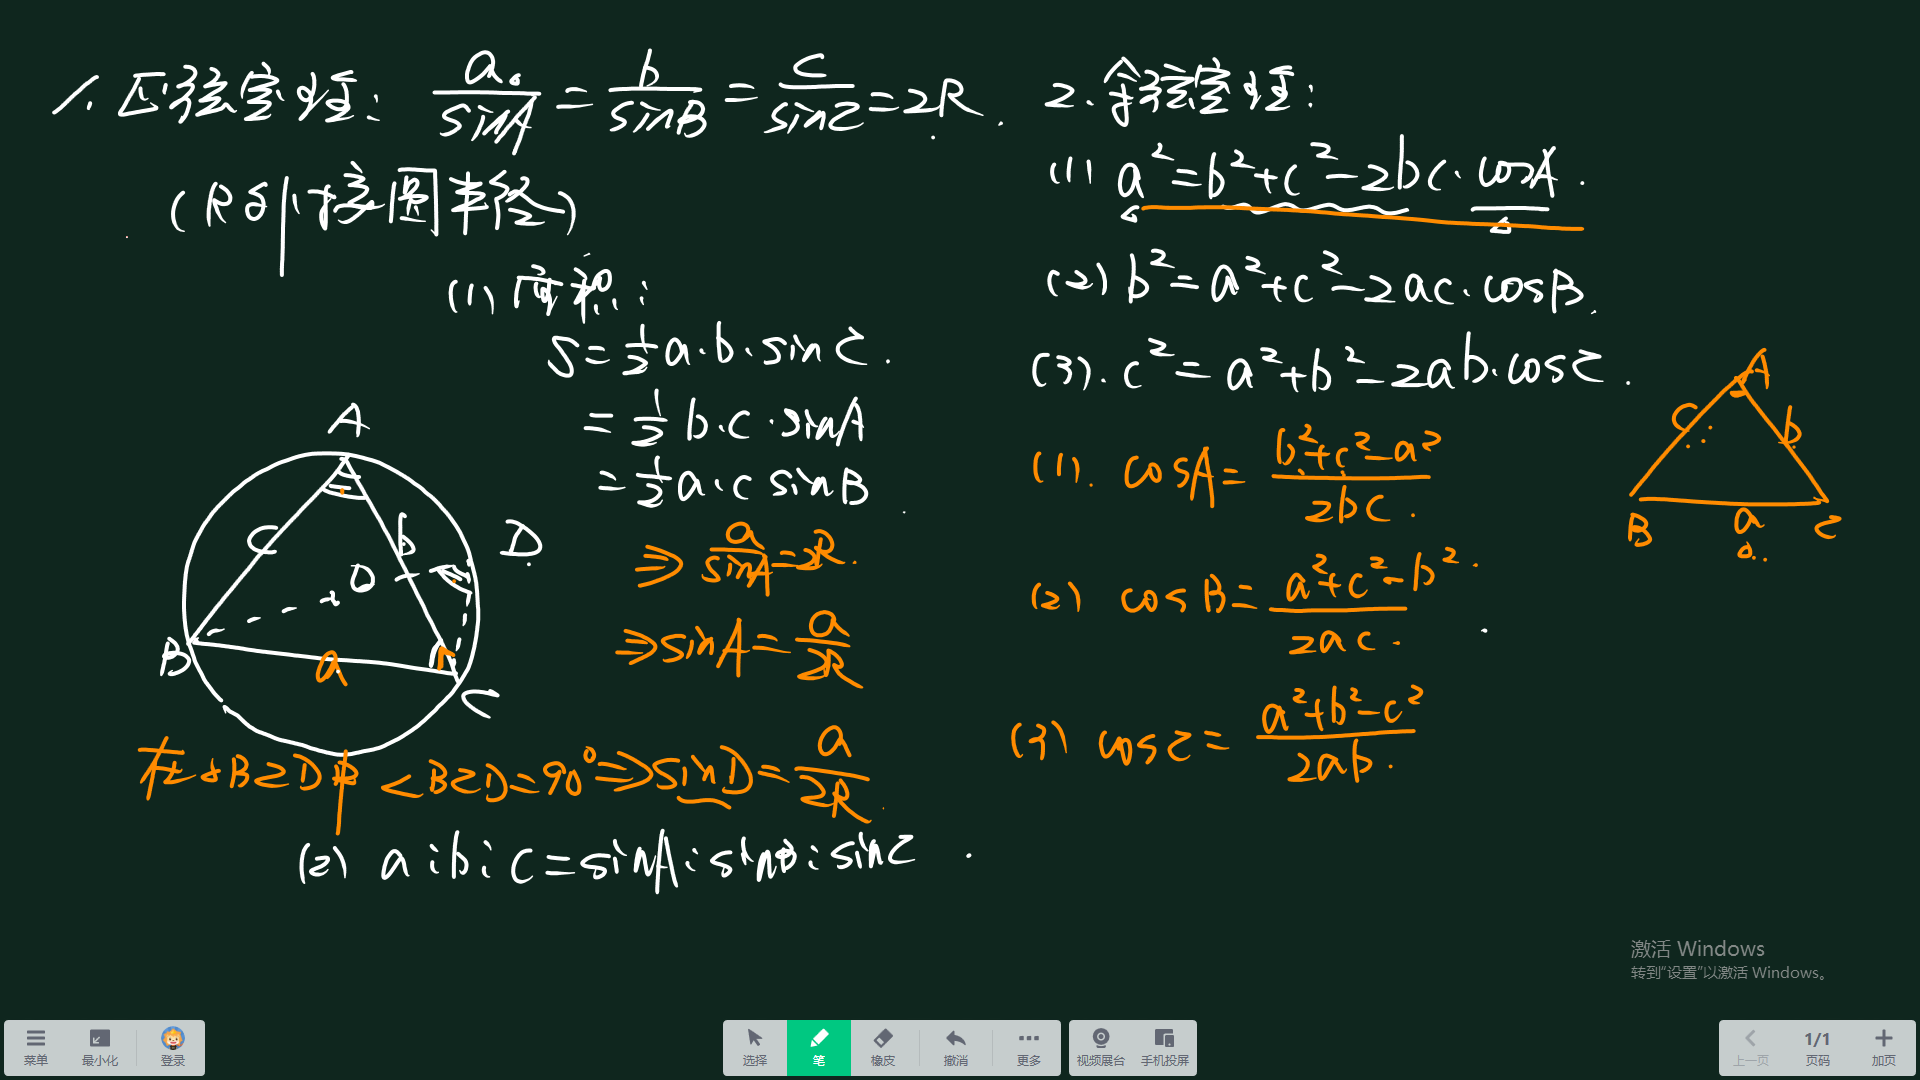 1. 正弦定理: a/sinA = b/sinB = c/sinC = 2R.
(R为外接圆半径)
(1) 面积:
S = 1/2 a·b·sinC.
= 1/2 b·c·sinA
= 1/2 a·c sinB
⇒ a/sinA = 2R.
⇒ sinA = a/2R
A
c
b
D
O
B
a
C
在△BCD中 ∠BCD=90° ⇒ sinD = a/2R
(2) a:b:c = sinA:sinB:sinC
2. 余弦定理:
(1) a² = b²+c²-2bc·cosA.
(2) b² = a²+c²-2ac·cosB.
(3). c² = a²+b²-2ab·cosC.
(1). cosA = b²+c²-a²/2bc.
(2) cosB = a²+c²-b²/2ac.
(3) cosC = a²+b²-c²/2ab.
A
c
b
B
a
C
激活 Windows
转到“设置”以激活 Windows。
菜单
最小化
登录
选择
笔
橡皮
撤消
更多
视频展台
手机投屏
上一页
1/1
页码
加页